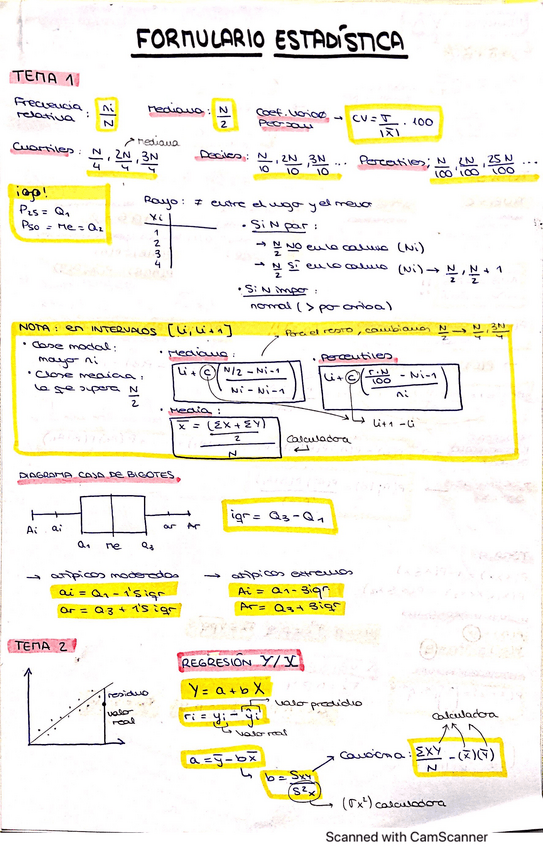 FORMULARIO ESTADÍSTICA
TEMA 1
Frecuencia relativa : ni/N
Mediana : N/2
Coef. Variac. Pearson → CV = σ/|x̄| · 100
Cuartiles : N/4, 2N/4, 3N/4 → mediana
Deciles : N/10, 2N/10, 3N/10 ...
Percentiles : N/100, 2N/100, 25N/100 ...
¡ojo!
P25 = Q1
P50 = Me = Q2
Rango : ≠ entre el mayor y el menor
Xi
1
2
3
4
• Si N par :
→ N/2 NO en la columna (Ni)
→ N/2 SÍ en la columna (Ni) → N/2, N/2 + 1
• Si N impar :
normal ( > por arriba)
NOTA : en INTERVALOS [Li, Li+1]
Para el resto, cambiamos N/2 → N/4, 3N/4
• Clase modal:
mayor ni
• Clase mediana:
la que supera N/2
• Mediana :
Li + C (N/2 - Ni-1 / Ni - Ni-1)
• Percentiles
Li + C (r·N/100 - Ni-1 / ni)
Li+1 - Li
• Media :
x̄ = ((ΣX + ΣY)/2)/N
Calculadora
DIAGRAMA CAJA DE BIGOTES
Ai ai ar Ar
Q1 Me Q3
iqr = Q3 - Q1
→ atípicos moderados
ai = Q1 - 1'5 iqr
ar = Q3 + 1'5 iqr
→ atípicos extremos
Ai = Q1 - 3iqr
Ar = Q3 + 3iqr
TEMA 2
residuo
valor real
REGRESIÓN Y/X
Y = a + b X
ri = yi - ŷi
valor predicho
valor real
a = ȳ - b x̄
b = Sxy/S²x
(σx²) calculadora
Covarianza : ΣXY/N - (x̄)(ȳ)
calculadora
Scanned with CamScanner